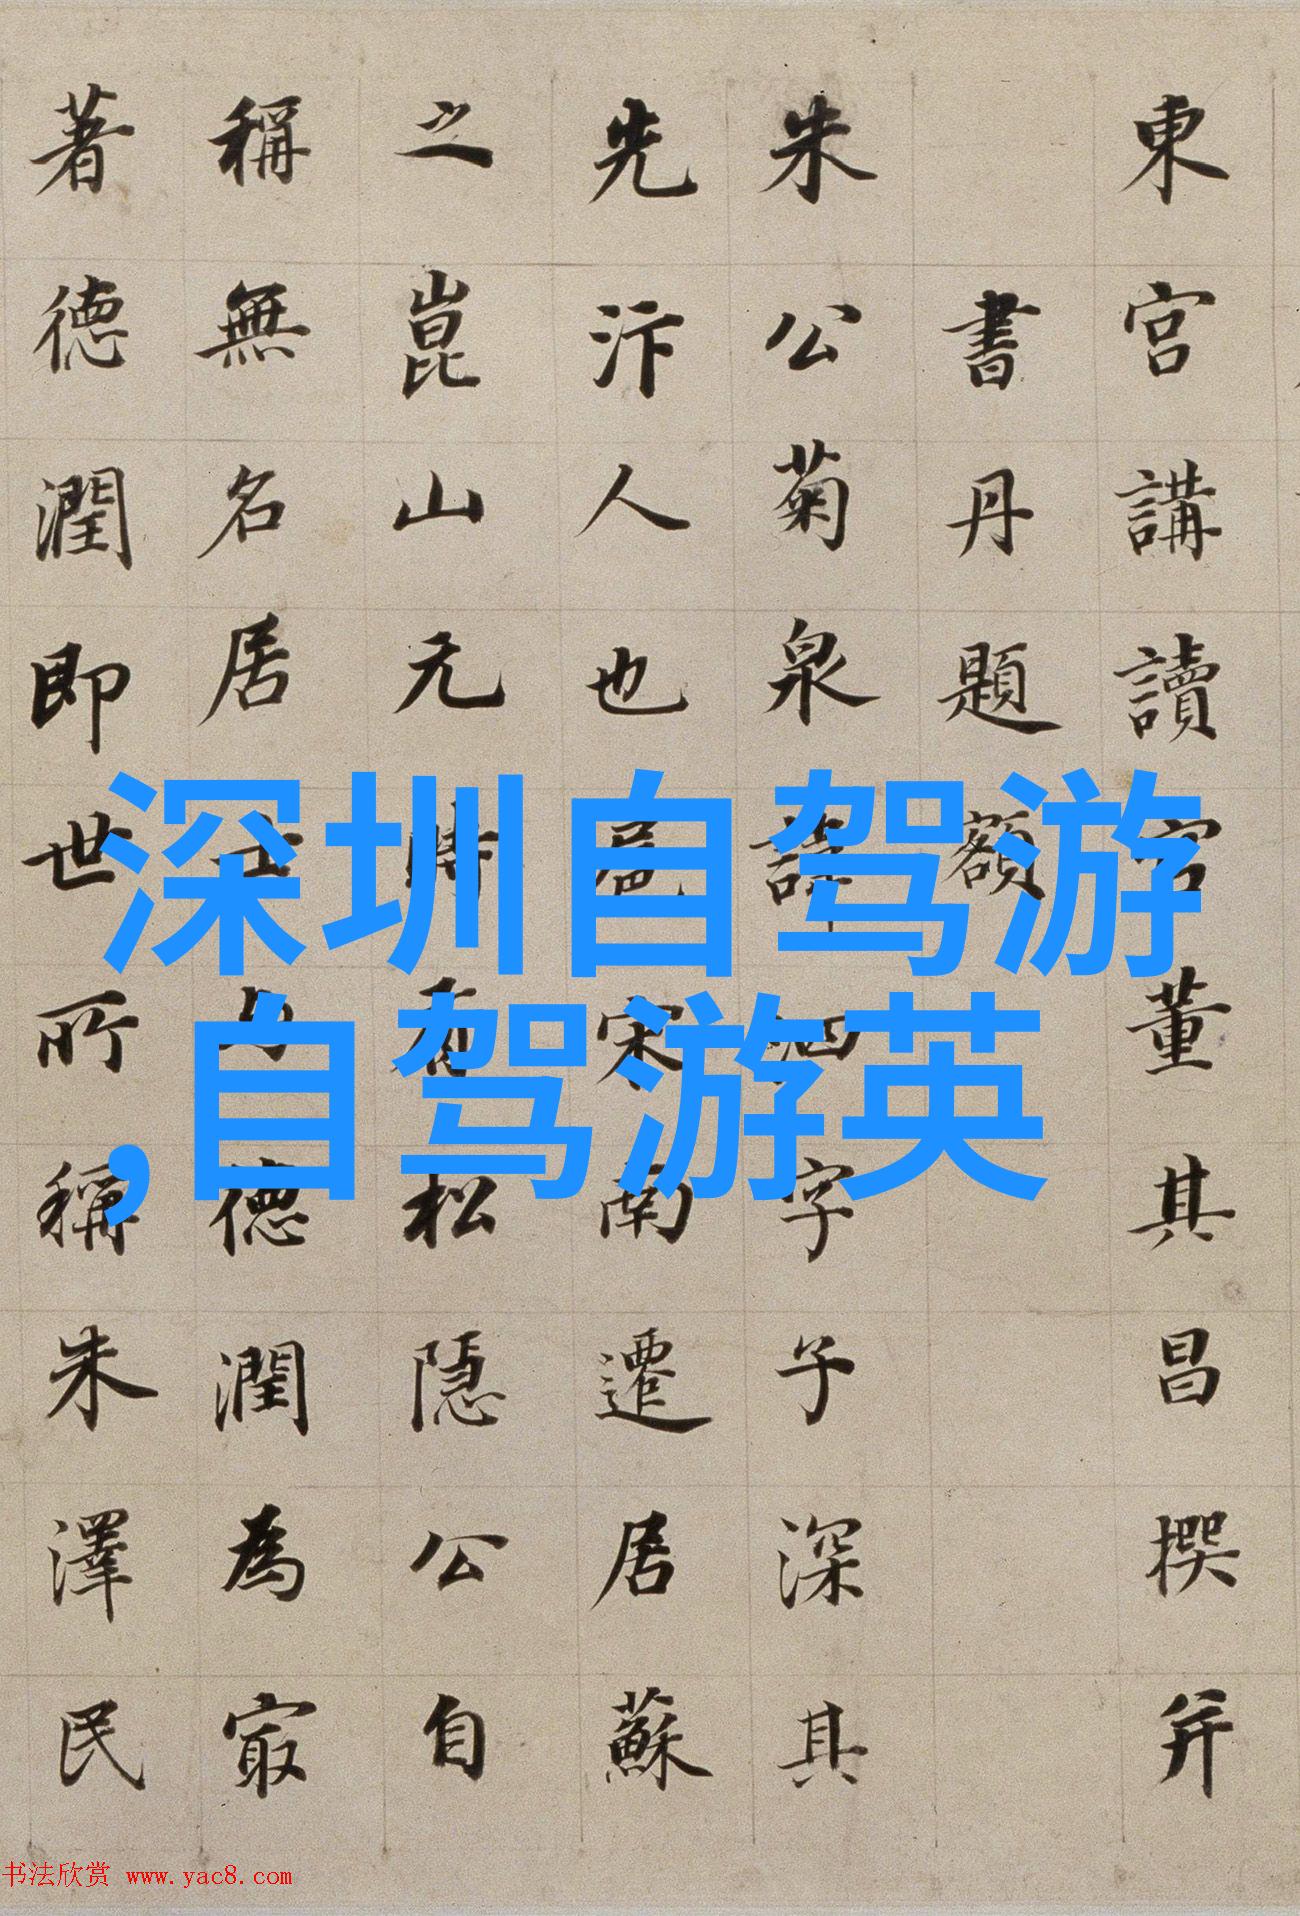 東宮講讀官董其昌撰并
書丹題額
朱公菊泉諱泗字子深其
先汴人也扈宋南遷居蘇
之崑山元時有松隱公自
稱無名居士德潤為冣
著德潤即世所稱朱澤民
深圳自驾游
,自驾游英
书法欣赏 www.yac8.com